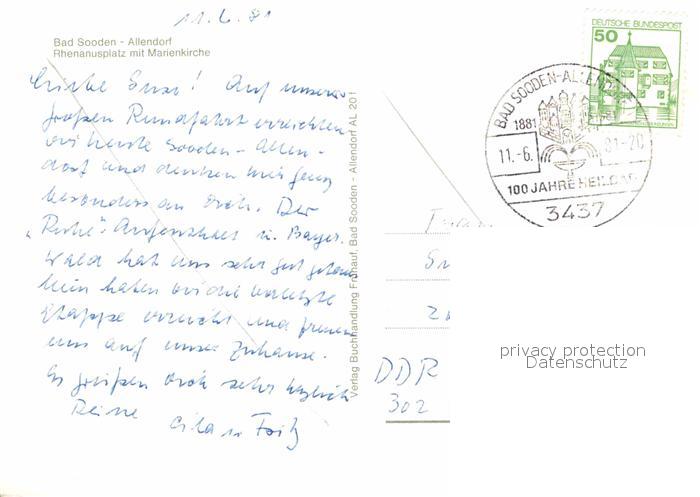 11.6.81
Bad Sooden - Allendorf
Rhenanusplatz mit Marienkirche
Liebe Susi! Auf unserer
großen Rundfahrt erreichten
wir heute Sooden-Allen-
dorf und denken hier ganz
besonders an Dich. Der
"Ruhe"-Aufenthalt i. Bayer.
Wald hat uns sehr gut getan.
haben wir die vorletzte
Etappe erreicht und freuen
uns auf unser Zuhause.
Es grüßen Dich sehr herzlich
Deine
Cila u. Fritz
Verlag Buchhandlung Frühauf, Bad Sooden - Allendorf AL 201
DEUTSCHE BUNDESPOST
50
BAD SOODEN-ALLENDORF
1881
11.-6. 81-20
100 JAHRE HEILBAD
3437
DDR
302
privacy protection
Datenschutz